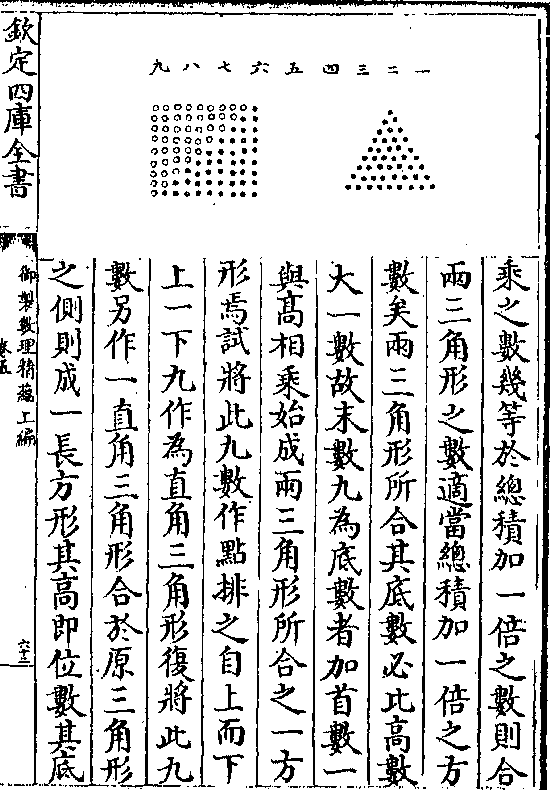 一二三四五六七八九
乘之數幾等於總積加一倍之數則合
兩三角形之數適當總積加一倍之方
數矣兩三角形所合其底數必比高數
大一數故末數九為底數者加首數一
與髙相乗始成兩三角形所合之一方
形焉試將此九數作點排之自上而下
上一下九作為直角三角形復將此九
數另作一直角三角形合於原三角形
之側則成一長方形其高即位數其底
欽定四庫全書
御製數理精藴上編
卷五
六十三